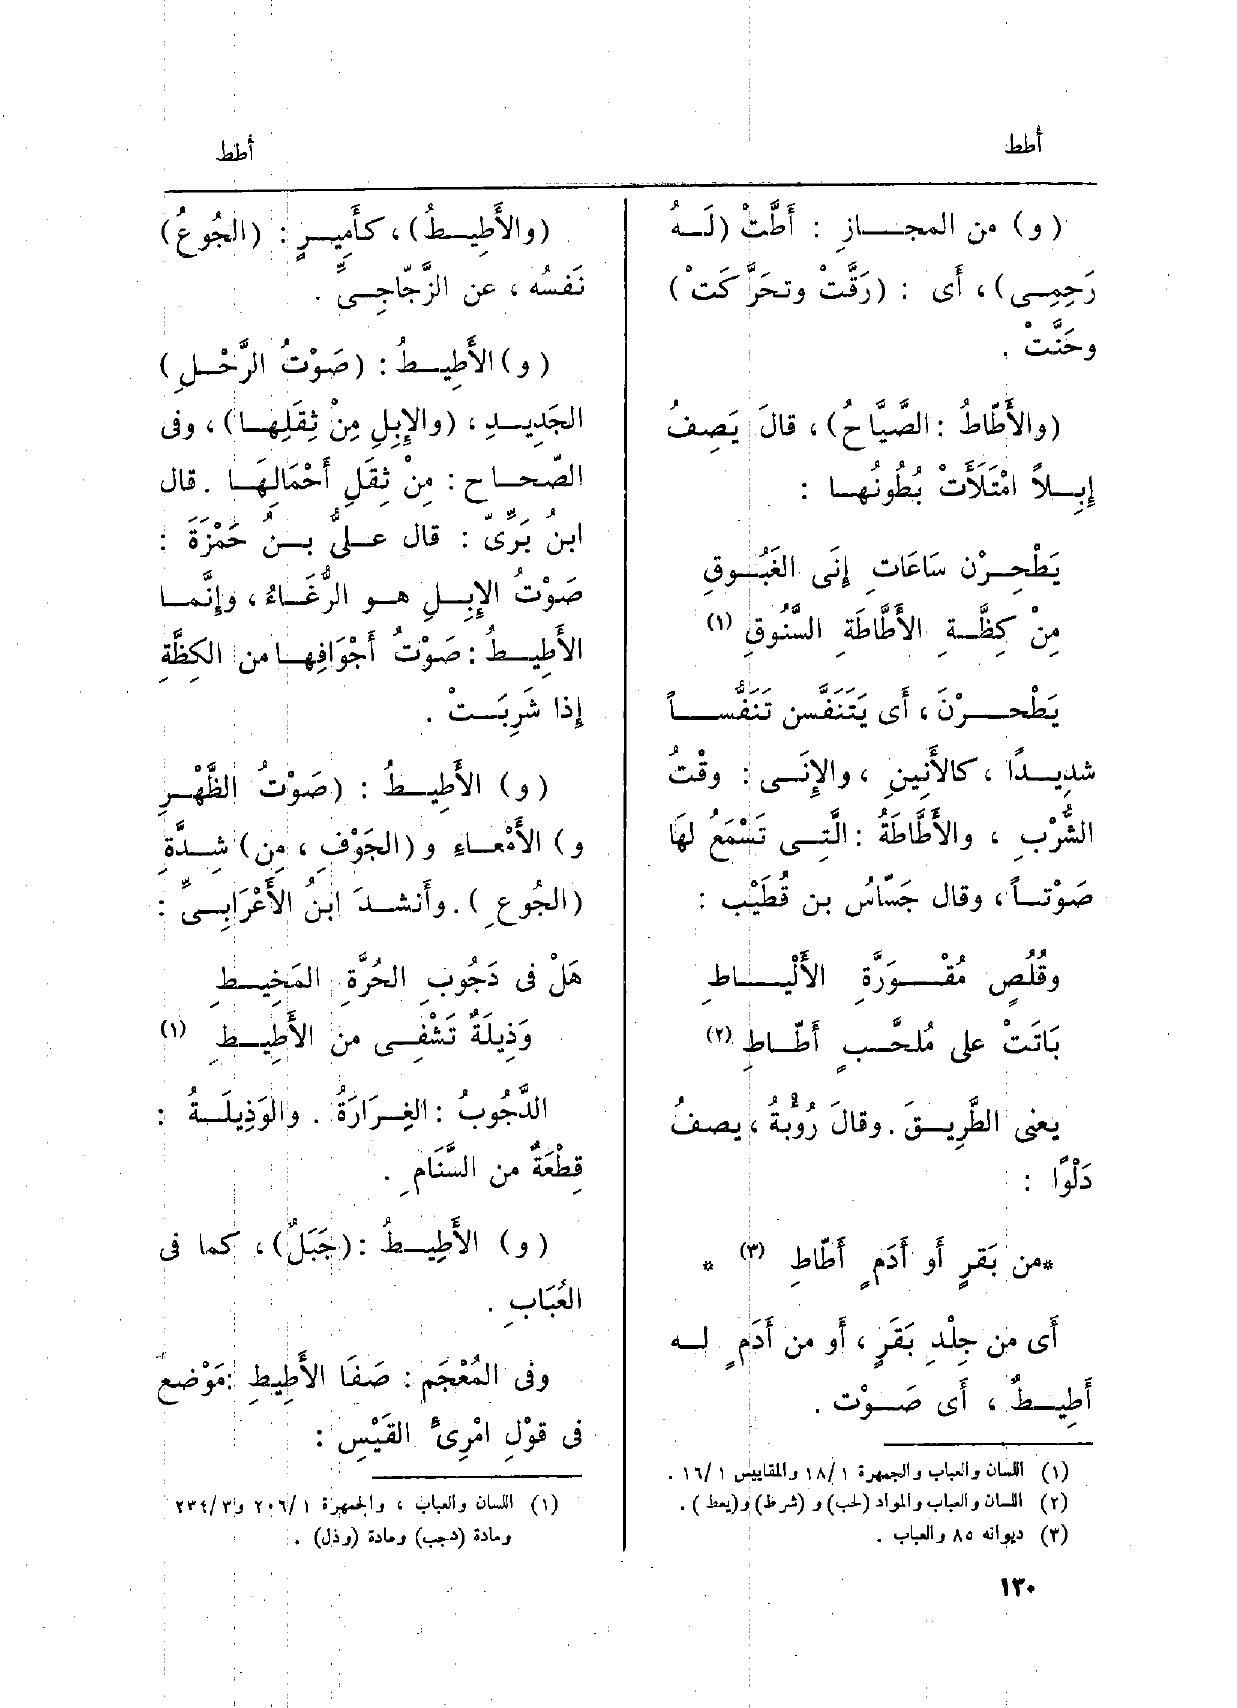 أطط
أطط
(و) من المجاز : أَطَّتْ (لَهُ
رَحِمِى)، أَى : (رَقَّتْ وتحَرَّكَتْ)
وحَنَّتْ .
(والأَطَّاطُ : الصَّيَّاحُ)، قالَ يَصِفُ
إِبِلاً امْتَلَأَتْ بُطُونُها :
يَطْحِرْن سَاعَاتِ إِنَى الغَبُوقِ
مِنْ كِظَّةِ الأَطَّاطَةِ السَّنُوقِ (١)
يَطْحِرْنَ ، أَى يَتَنَفَّسن تَنَفُّساً
شدِيدًا ، كالأَنِينِ ، والإِنَى : وقْتُ
الشُّرْبِ ، والأَطَّاطَةُ : الَّتِى تَسْمَعُ لهَا
صَوْتاً ، وقال جَسَّاسُ بن قُطَيْب :
وقُلُصٍ مُقْوَرَّةِ الأَلْيَاطِ
بَاتَتْ على مُلَحَّبٍ أَطَّاطِ (٢)
يعنى الطَّرِيقَ . وقالَ رُؤْبةُ ، يصفُ
دَلْوًا :
*من بَقَرٍ أَو أَدَمٍ أَطَّاطِ (٣) *
أَى من جِلْدِ بَقَرٍ ، أَو من أَدَمٍ له
أَطِيطٌ ، أَى صَوْت .
(١) اللسان والعباب والجمهرة ١/ ١٨ والمقاييس ١/ ١٦ .
(٢) اللسان والعباب والمواد (لحب) و (شرط) و(يعط) .
(٣) ديوانه ٨٥ والعباب .
(والأَطِيطُ)، كأَمِيرٍ : (الجُوعُ)
نَفسُه ، عن الزَّجّاجِىِّ .
(و) الأَطِيطُ : (صَوْتُ الرَّحْلِ)
الجَدِيدِ ، (والإِبِلِ مِنْ ثِقَلِها)، وفى
الصّحاح : مِنْ ثِقَلِ أَحْمَالِهَا . قال
ابنُ بَرِّىّ : قال علىُّ بنُ حَمْزَةَ :
صَوْتُ الإِبِلِ هو الرُّغَاءُ ، وإِنَّما
الأَطِيطُ : صَوْتُ أَجْوَافِها من الكِظَّةِ
إِذا شَرِبَتْ .
(و) الأَطِيطُ : (صَوْتُ الظَّهْرِ
و) الأَمْعاءِ و (الجَوْفِ ، مِن) شِدَّةِ
(الجُوعِ) . وأَنشدَ ابنُ الأَعْرَابِىِّ :
هَلْ فى دَجُوبِ الحُرَّةِ المَخِيطِ
وَذِيلَةٌ تَشْفِى من الأَطِيطِ (١)
الدَّجُوبُ : الغِرَارَةُ . والوَذِيلَةُ :
قِطْعَةٌ من السَّنَامِ .
(و) الأَطِيطُ : (جَبَلٌ)، كما فى
العُبَابِ .
وفى المُعْجَم : صَفَا الأَطِيطِ : مَوْضع
فى قوْلِ امْرِئ القَيْس :
(١) اللسان والعباب ، والجمهرة ١/ ٢٠٦ و٣/ ٢٣٤
ومادة (دجب) ومادة (وذل) .
١٣٠